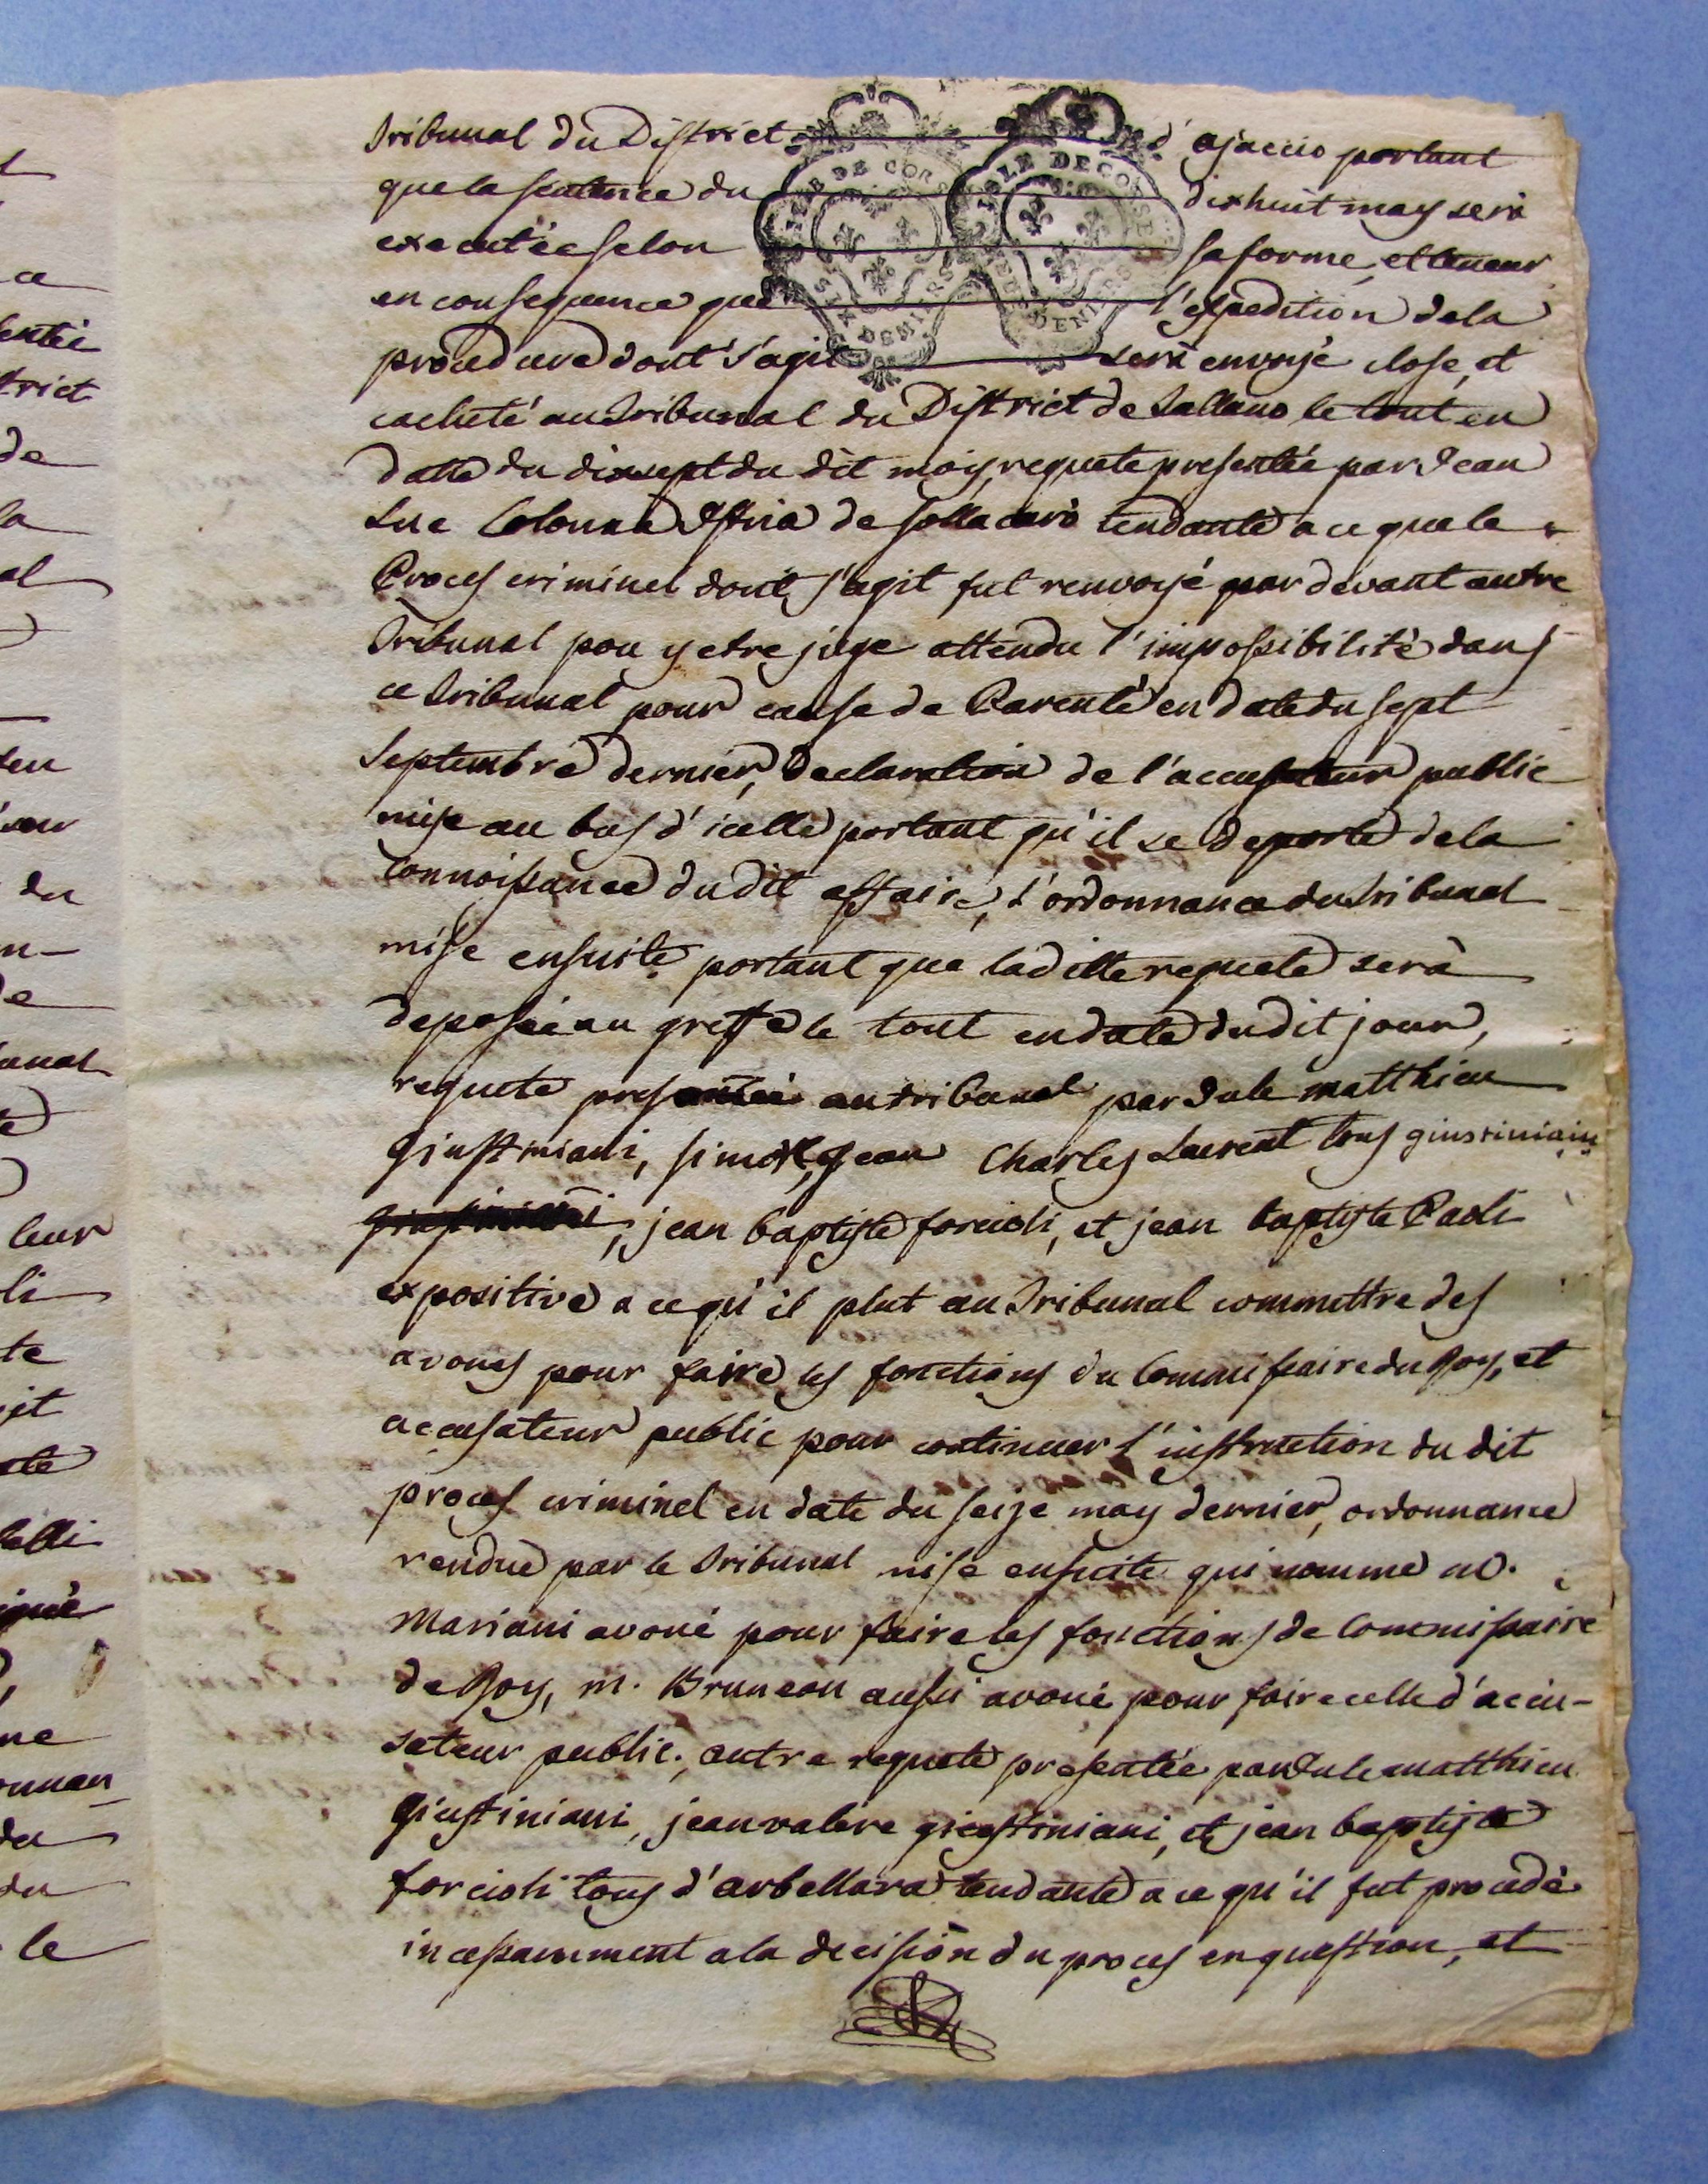 Tribunal du District d'ajaccio portant
que la sentence du dixhuit may serà
executée selon sa forme, et teneur
en consequence que l'expedition de la
procedure dont s'agit serà envoyé close, et
cacheté au Tribunal du District de Tallano le tout en
datte du dixsept du dit mois, requete presentée par Jean
Luc Colonna d'Istria de sollacarò tendante a ce que le
Proces criminel dont s'agit fut renvoyé par devant autre
Tribunal pou y etre juge attendu l'impossibilité dans
ce Tribunal pour cause de Parenté en date du sept
Septembre dernier, Declaration de l'accusateur public
mise au bas d'icelle portant qu'il se deporte de la
connoissance du dit affaire, l'ordonnance du Tribunal
mise ensuite portant que laditte requete serà
deposée au greffe le tout en date dudit jour,
requete presentée au tribunal par Jule matthieu
Giustiniani, simon, Jean Charles Laurent tous giustiniani
giustiniani, jean baptiste forcioli, et jean baptiste Paoli
expositive a ce qu'il plut au Tribunal commettre des
avoues pour faire les fonctions du Commissaire du Roy, et
accusateur public pour continuer l'instruction du dit
proces criminel en date du seize may dernier, ordonnance
rendue par le Tribunal mise ensuite qui nomme m.
Mariani avoué pour faire les fonctions de Commissaire
de Roy, m. Bruneau aussi avoué pour faire celle d'accu-
sateur public, autre requete presentée par Jule matthieu
Giustiniani, jean valere giustiniani, et jean baptiste
forcioli tous d'arbellara tendante a ce qu'il fut procedé
incessamment a la decision du proces en question, et
ISLE DE CORSE
SIX DENIERS
ISLE DE CORSE
DENIERS